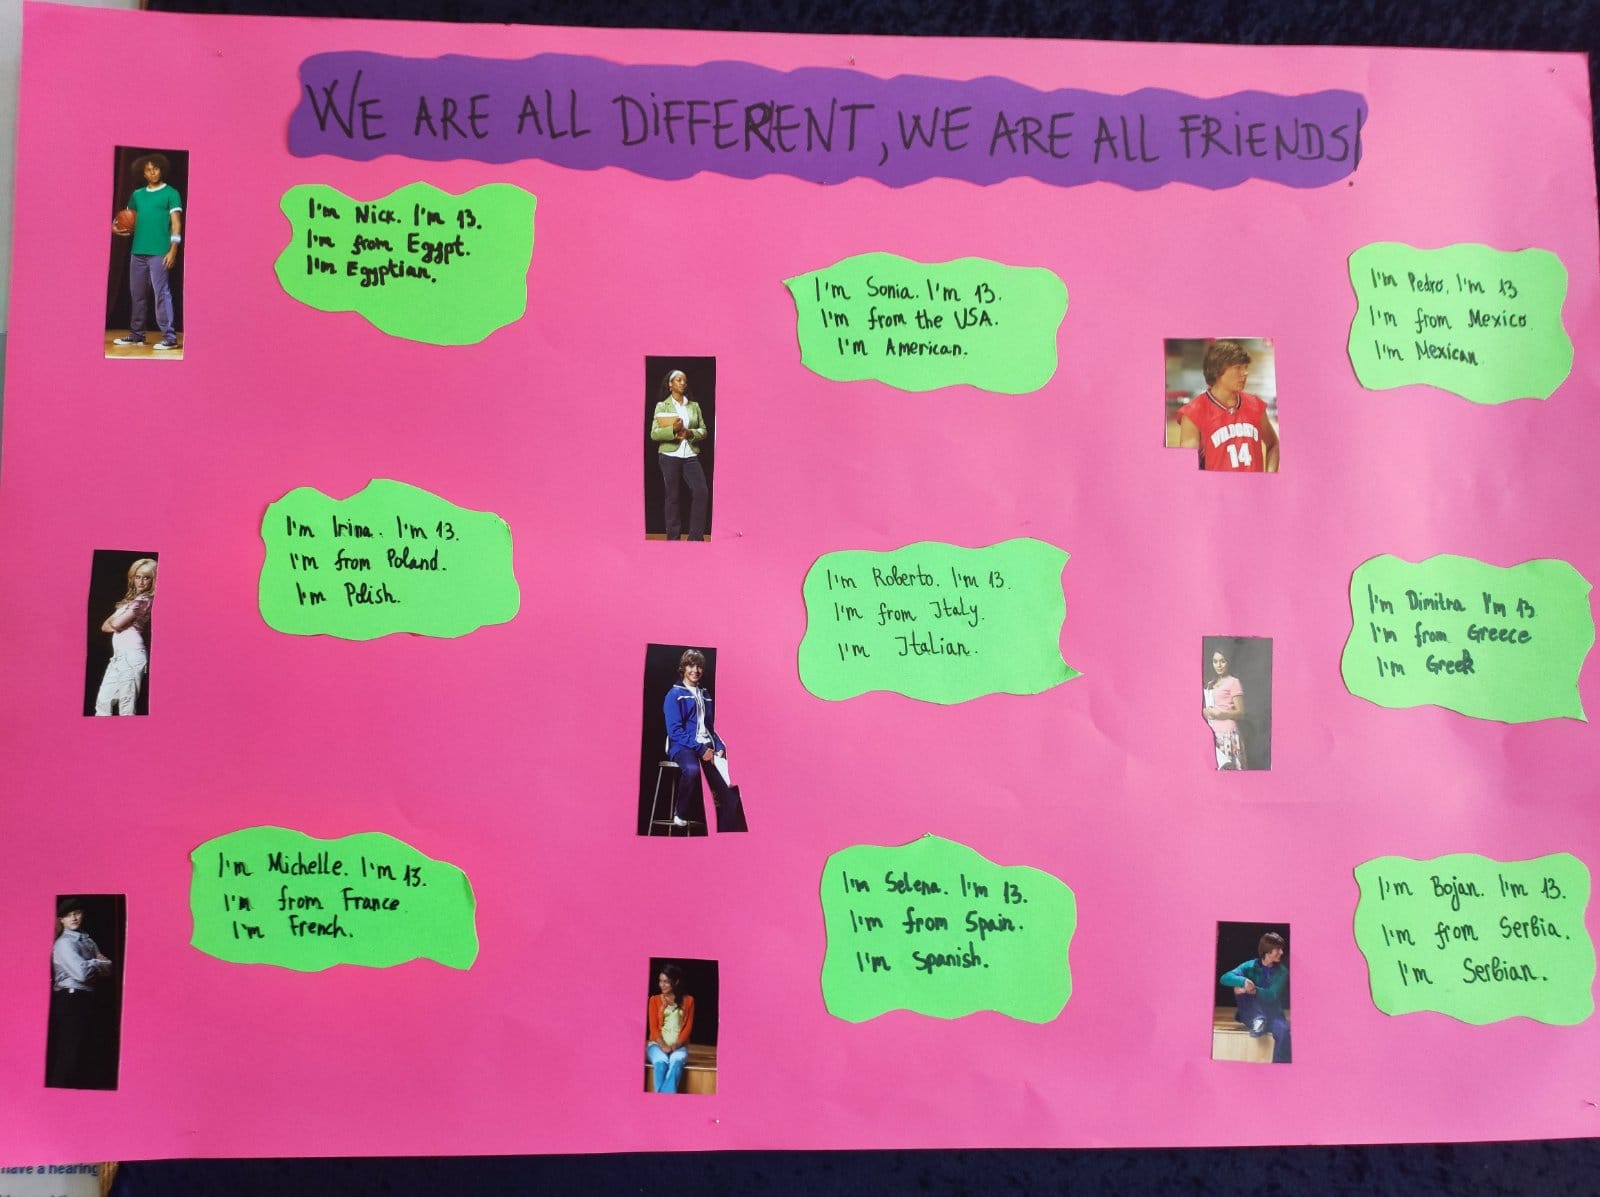 WE ARE ALL DIFFERENT, WE ARE ALL FRIENDS!
I'm Nick. I'm 13.
I'm from Egypt.
I'm Egyptian.
I'm Sonia. I'm 13.
I'm from the USA.
I'm American.
I'm Pedro. I'm 13
I'm from Mexico
I'm Mexican
WILDCATS
14
I'm Irina. I'm 13.
I'm from Poland.
I'm Polish.
I'm Roberto. I'm 13.
I'm from Italy.
I'm Italian.
I'm Dimitra I'm 13
I'm from Greece
I'm Greek
I'm Michelle. I'm 13.
I'm from France
I'm French.
I'm Selena. I'm 13.
I'm from Spain.
I'm Spanish.
I'm Bojan. I'm 13.
I'm from Serbia.
I'm Serbian.
have a hearing